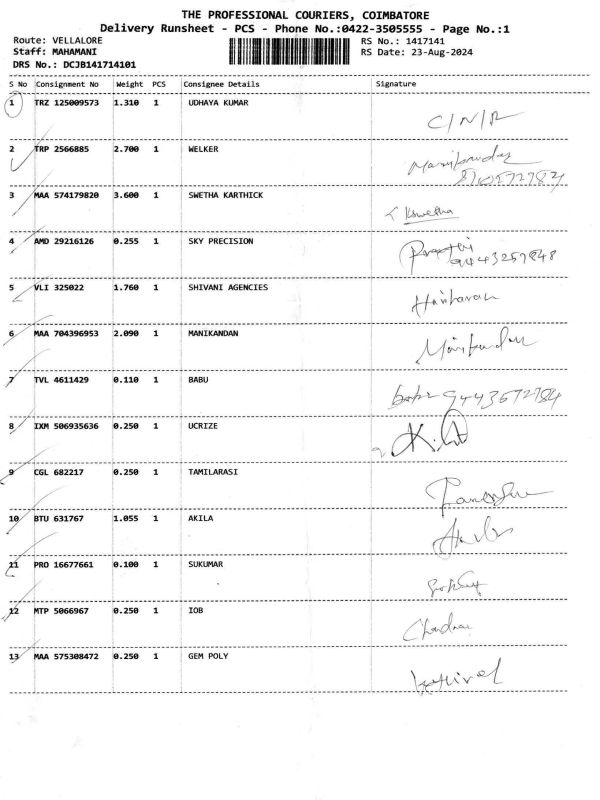 THE PROFESSIONAL COURIERS, COIMBATORE
Delivery Runsheet - PCS - Phone No.:0422-3505555 - Page No.:1
Route: VELLALORE
Staff: MAHAMANI
DRS No.: DCJB141714101
RS No.: 1417141
RS Date: 23-Aug-2024
S No Consignment No Weight PCS Consignee Details Signature
1 TRZ 125009573 1.310 1 UDHAYA KUMAR C/N/R
2 TRP 2566885 2.700 1 WELKER
3 MAA 574179820 3.600 1 SWETHA KARTHICK Kswetha
4 AMD 29216126 0.255 1 SKY PRECISION
9443259848
5 VLI 325022 1.760 1 SHIVANI AGENCIES Hariharan
6 MAA 704396953 2.090 1 MANIKANDAN
7 TVL 4611429 0.110 1 BABU
8 IXM 506935636 0.250 1 UCRIZE
9 CGL 682217 0.250 1 TAMILARASI
10 BTU 631767 1.055 1 AKILA
11 PRO 16677661 0.100 1 SUKUMAR
12 MTP 5066967 0.250 1 IOB
13 MAA 575308472 0.250 1 GEM POLY